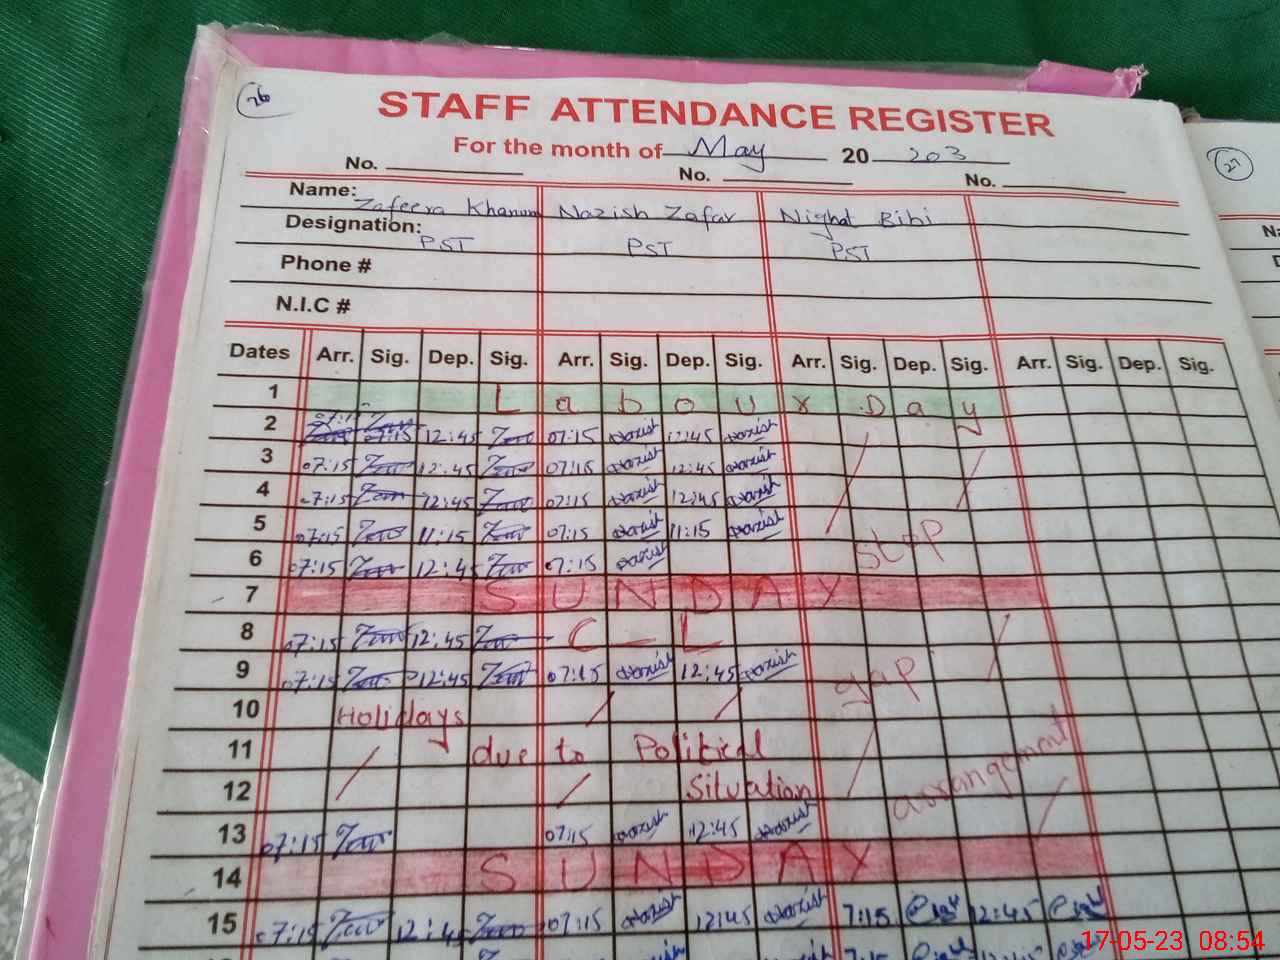 26
STAFF ATTENDANCE REGISTER
For the month of May 20 203
No. No. No.
27
Name: Zafeera Khanum Nazish Zafar Nighat Bibi
Designation: PST PST PST
Phone #
N.I.C #
Dates Arr. Sig. Dep. Sig. Arr. Sig. Dep. Sig. Arr. Sig. Dep. Sig. Arr. Sig. Dep. Sig.
1 Labour Day
2 07:15 07:15 12:45 07:15 Nazish 12:45 Nazish
3 07:15 12:45 07:15 Nazish 12:45 Nazish
4 07:15 12:45 07:15 Nazish 12:45 Nazish
5 07:15 11:15 07:15 Nazish 11:15 Nazish stop
6 07:15 12:45 07:15 Nazish
7 SUNDAY
8 07:15 12:45 C-L
9 07:15 12:45 07:15 Nazish 12:45 Nazish gap
10 Holidays
11 due to Political
12 Situation arrangement
13 07:15 07:15 Nazish 12:45 Nazish
14 SUNDAY
15 07:15 12:4 07:15 Nazish 12:45 Nazish 7:15 12:45
17-05-23 08:54